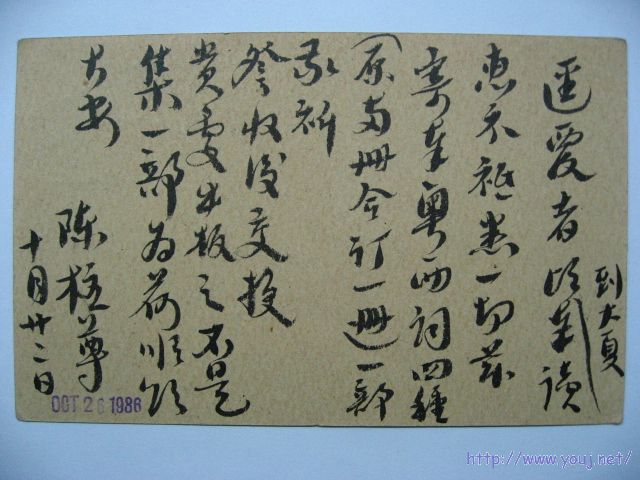 逕覆者頃奉讀
到大夏
惠示祗悉一切茲
寄奉粵西詞四種
(原兩冊合訂一冊)一部
敬祈
詧收後交換
貴處出版之不是
集一部為荷順頌
大安
陳柱尊
十月廿二日
OCT 26 1986
http://www.youj.net/